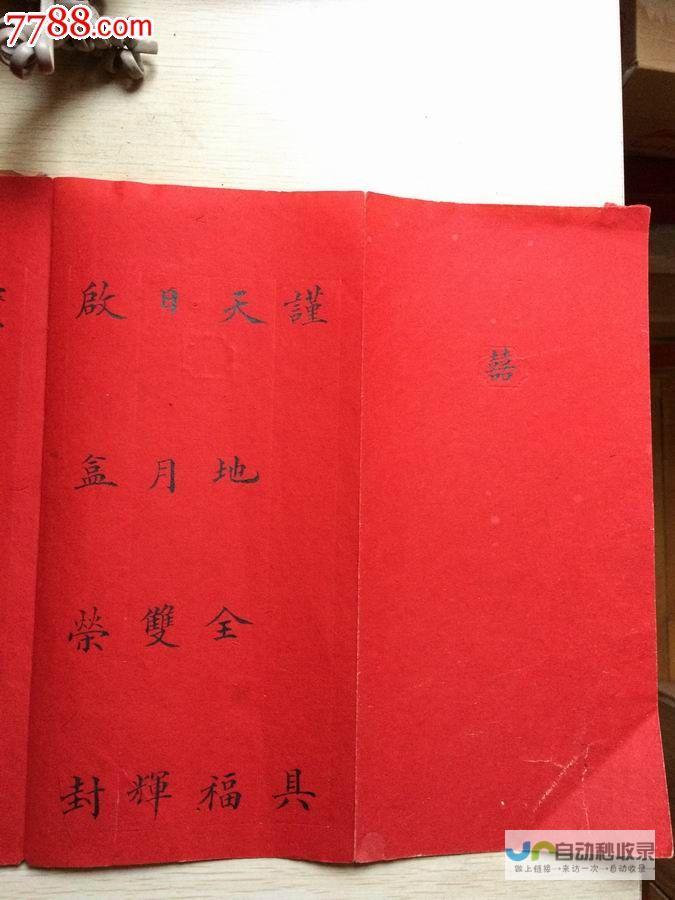 7788.com
囍
謹具
天地全福
日月雙輝
啟盒榮封
自动秒收录
做上链接→来访一次→自动收录